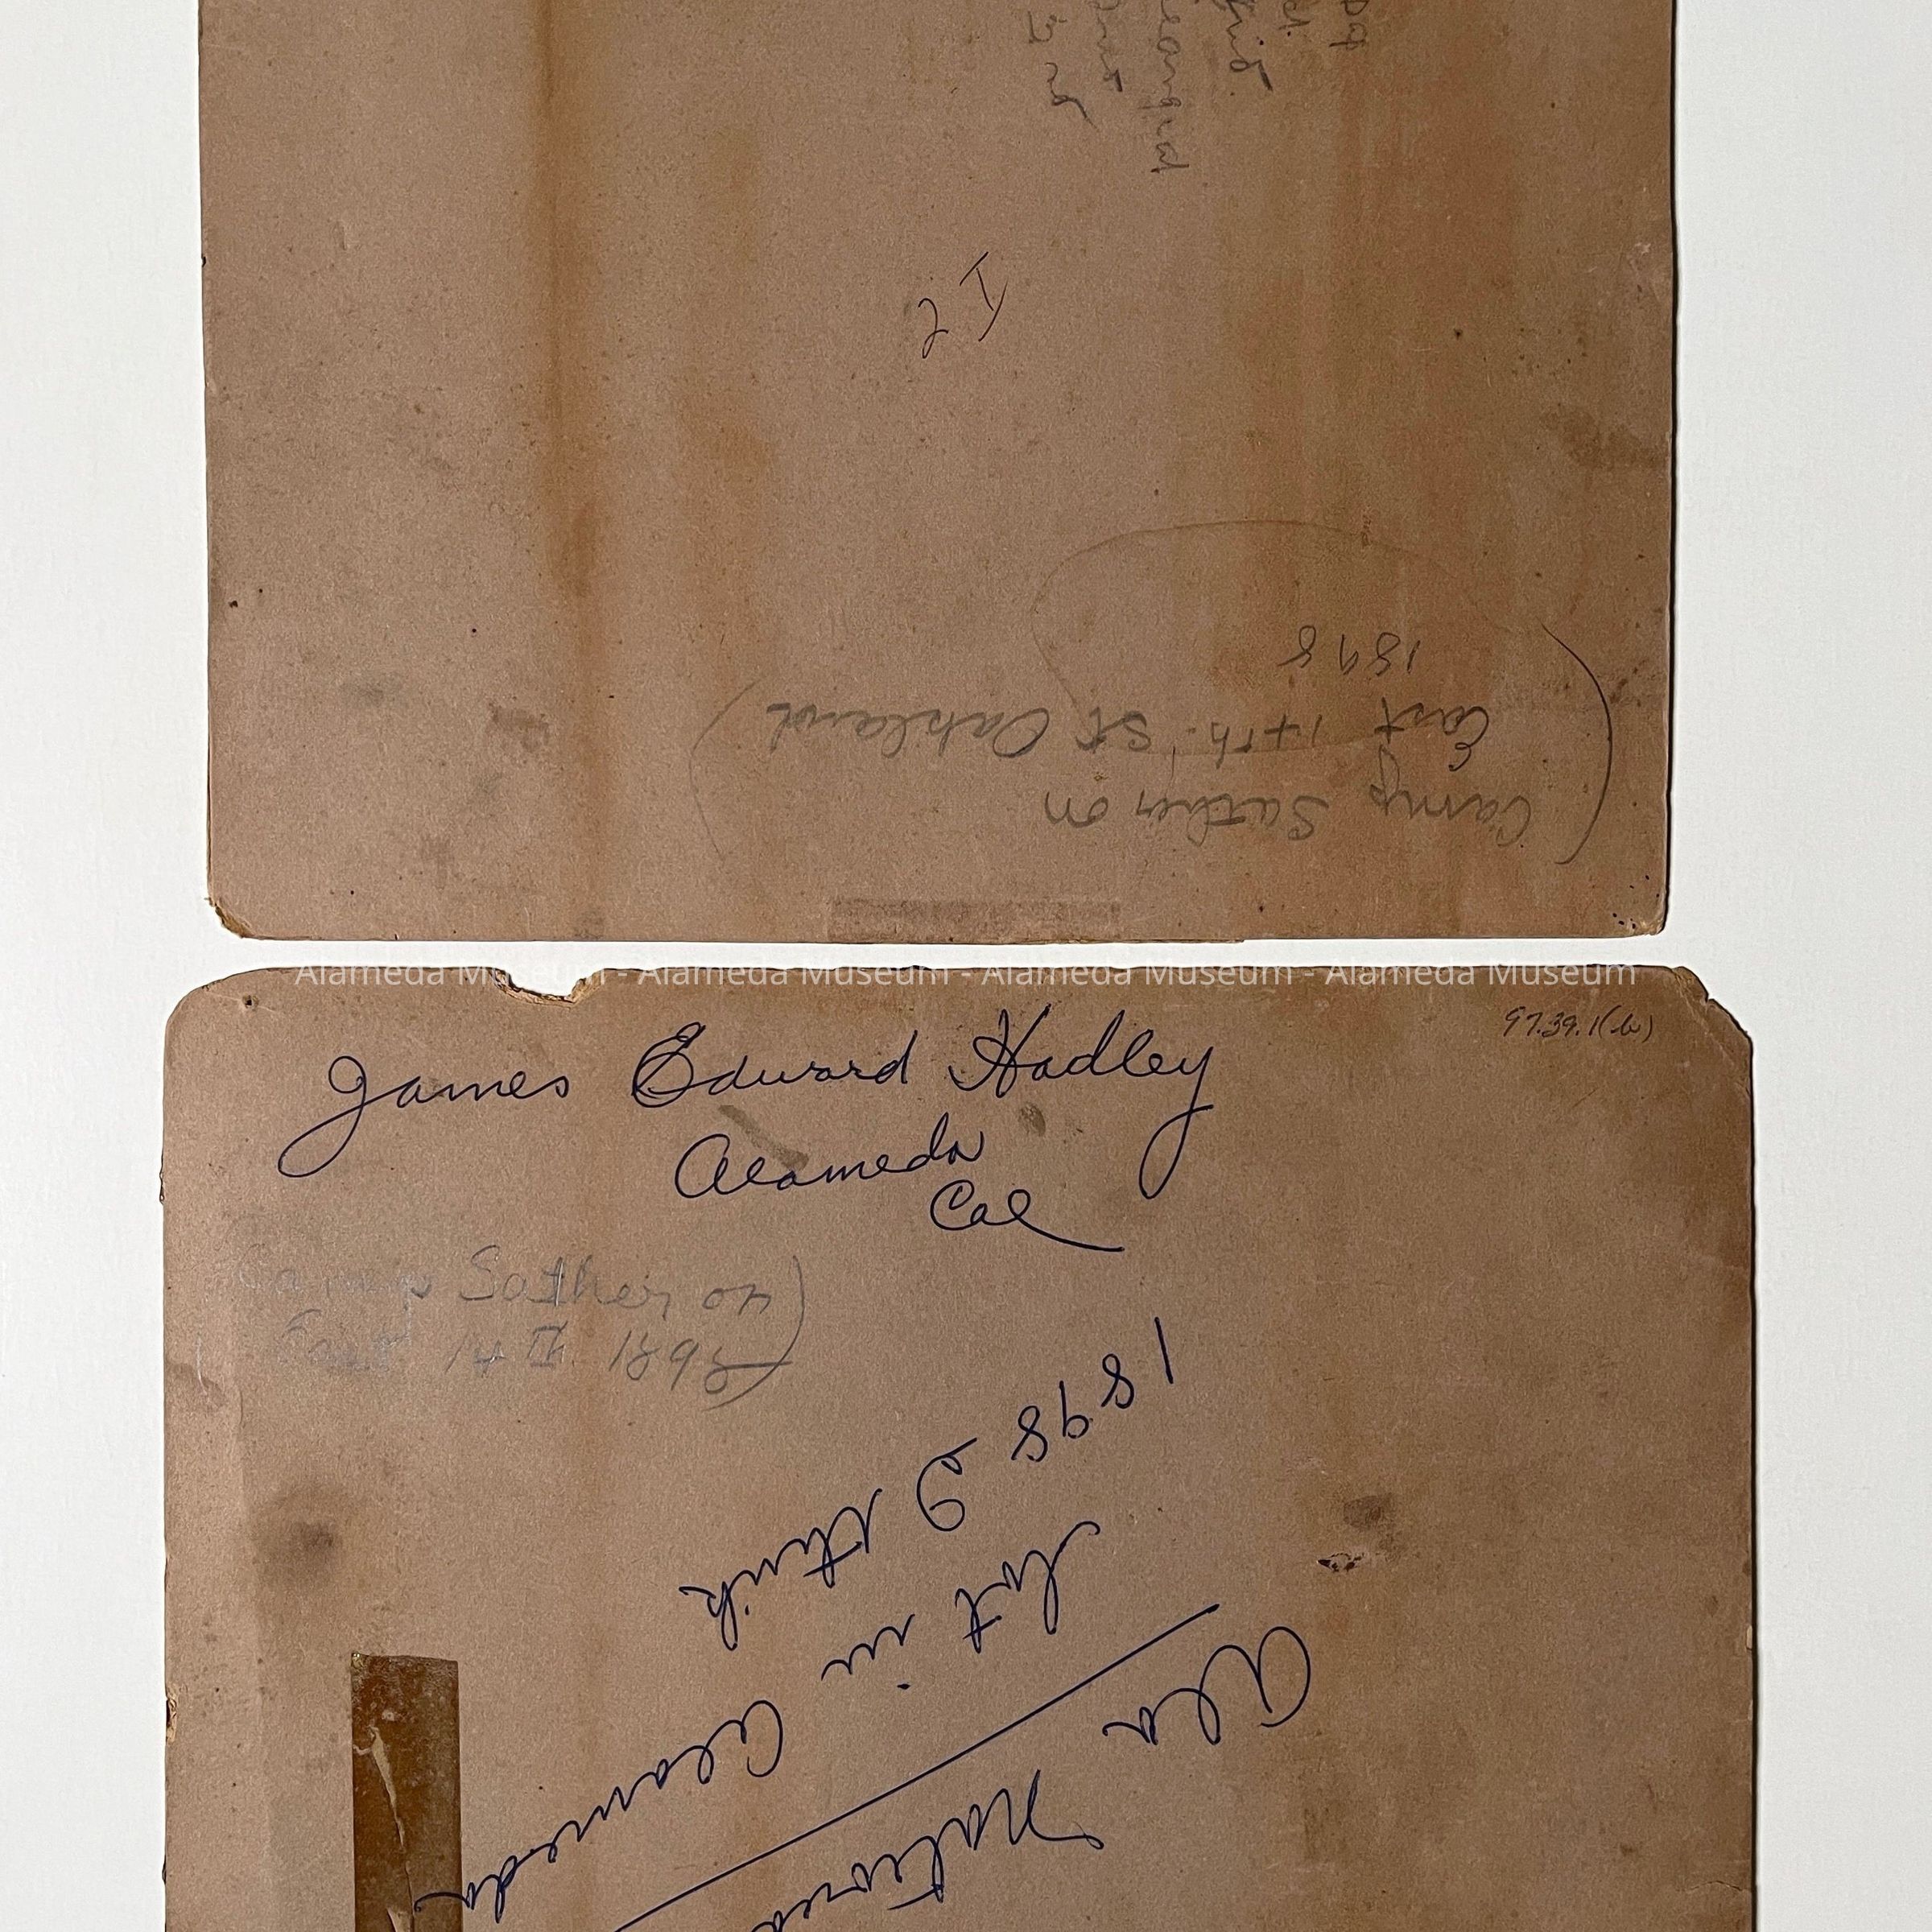 I 2
(Camp Sather on
East 14th. St. Oakland)
1898
Alameda Museum - Alameda Museum - Alameda Museum - Alameda Museum
97.39.1(b)
James Edward Hadley
Alameda
Cal
Camp Sather on
East 14th 1898)
Ala National
shot in Alameda
1898 I think